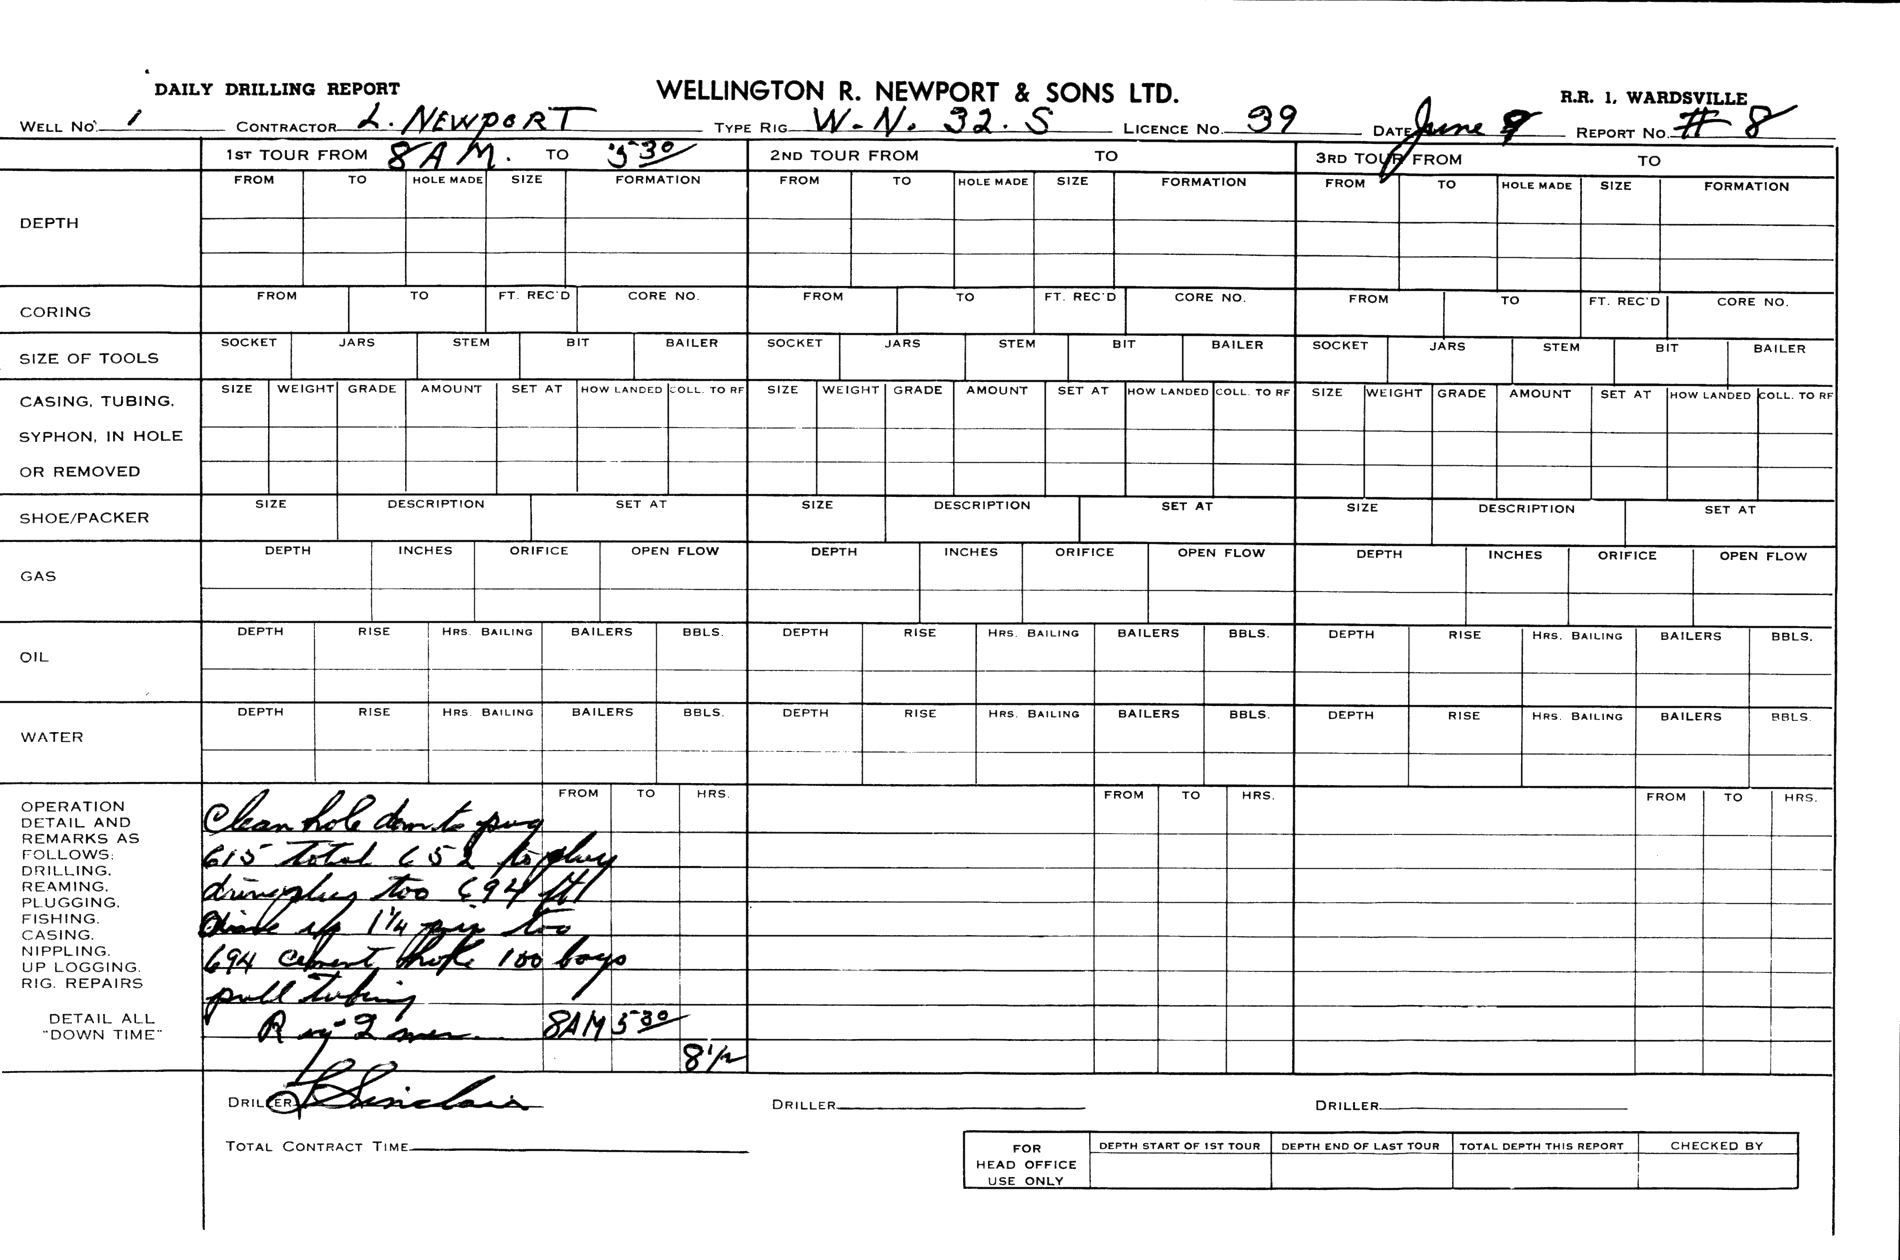 DAILY DRILLING REPORT WELLINGTON R. NEWPORT & SONS LTD. R.R. 1, WARDSVILLE
WELL NO. 1 CONTRACTOR L. NEWPORT TYPE RIG W.N. 32.S LICENCE NO. 39 DATE June REPORT NO. # 8
1ST TOUR FROM 8 A M. TO 5 30 2ND TOUR FROM TO 3RD TOUR FROM TO
DEPTH FROM TO HOLE MADE SIZE FORMATION FROM TO HOLE MADE SIZE FORMATION FROM TO HOLE MADE SIZE FORMATION
CORING FROM TO FT. REC'D CORE NO. FROM TO FT. REC'D CORE NO. FROM TO FT. REC'D CORE NO.
SIZE OF TOOLS SOCKET JARS STEM BIT BAILER SOCKET JARS STEM BIT BAILER SOCKET JARS STEM BIT BAILER
CASING, TUBING, SIZE WEIGHT GRADE AMOUNT SET AT HOW LANDED COLL. TO RF SIZE WEIGHT GRADE AMOUNT SET AT HOW LANDED COLL. TO RF SIZE WEIGHT GRADE AMOUNT SET AT HOW LANDED COLL. TO RF
SYPHON, IN HOLE
OR REMOVED
SHOE/PACKER SIZE DESCRIPTION SET AT SIZE DESCRIPTION SET AT SIZE DESCRIPTION SET AT
GAS DEPTH INCHES ORIFICE OPEN FLOW DEPTH INCHES ORIFICE OPEN FLOW DEPTH INCHES ORIFICE OPEN FLOW
OIL DEPTH RISE HRS. BAILING BAILERS BBLS. DEPTH RISE HRS. BAILING BAILERS BBLS. DEPTH RISE HRS. BAILING BAILERS BBLS.
WATER DEPTH RISE HRS. BAILING BAILERS BBLS. DEPTH RISE HRS. BAILING BAILERS BBLS. DEPTH RISE HRS. BAILING BAILERS BBLS.
FROM TO HRS. FROM TO HRS. FROM TO HRS.
OPERATION
DETAIL AND
REMARKS AS
FOLLOWS:
DRILLING,
REAMING,
PLUGGING,
FISHING.
CASING.
NIPPLING.
UP LOGGING.
RIG. REPAIRS
DETAIL ALL
"DOWN TIME"
Clean hole down to
615 total 652 to plug
plug too 694 ft
up 1 1/4 too
694 cement 100 bags
pull tubing
Rig 2 men 8AM 5 30
8 1/2
DRILLER Sinclair DRILLER DRILLER
TOTAL CONTRACT TIME
FOR HEAD OFFICE USE ONLY DEPTH START OF 1ST TOUR DEPTH END OF LAST TOUR TOTAL DEPTH THIS REPORT CHECKED BY